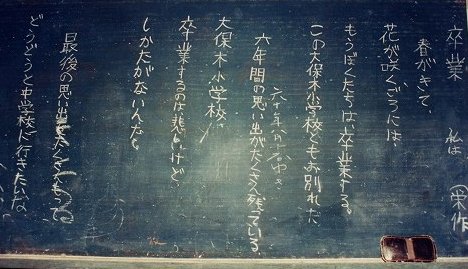 卒業
春がきて、
花が咲くころには、
もうぼくたちは、卒業する。
この大保木小学校ともお別れだ
六年間の思い出がたくさん残っている、
大保木小学校。
卒業するのは悲しいけど、
しかたがないんだな。
最後の思い出をたくさん
どうどうと中学校に行きたいな